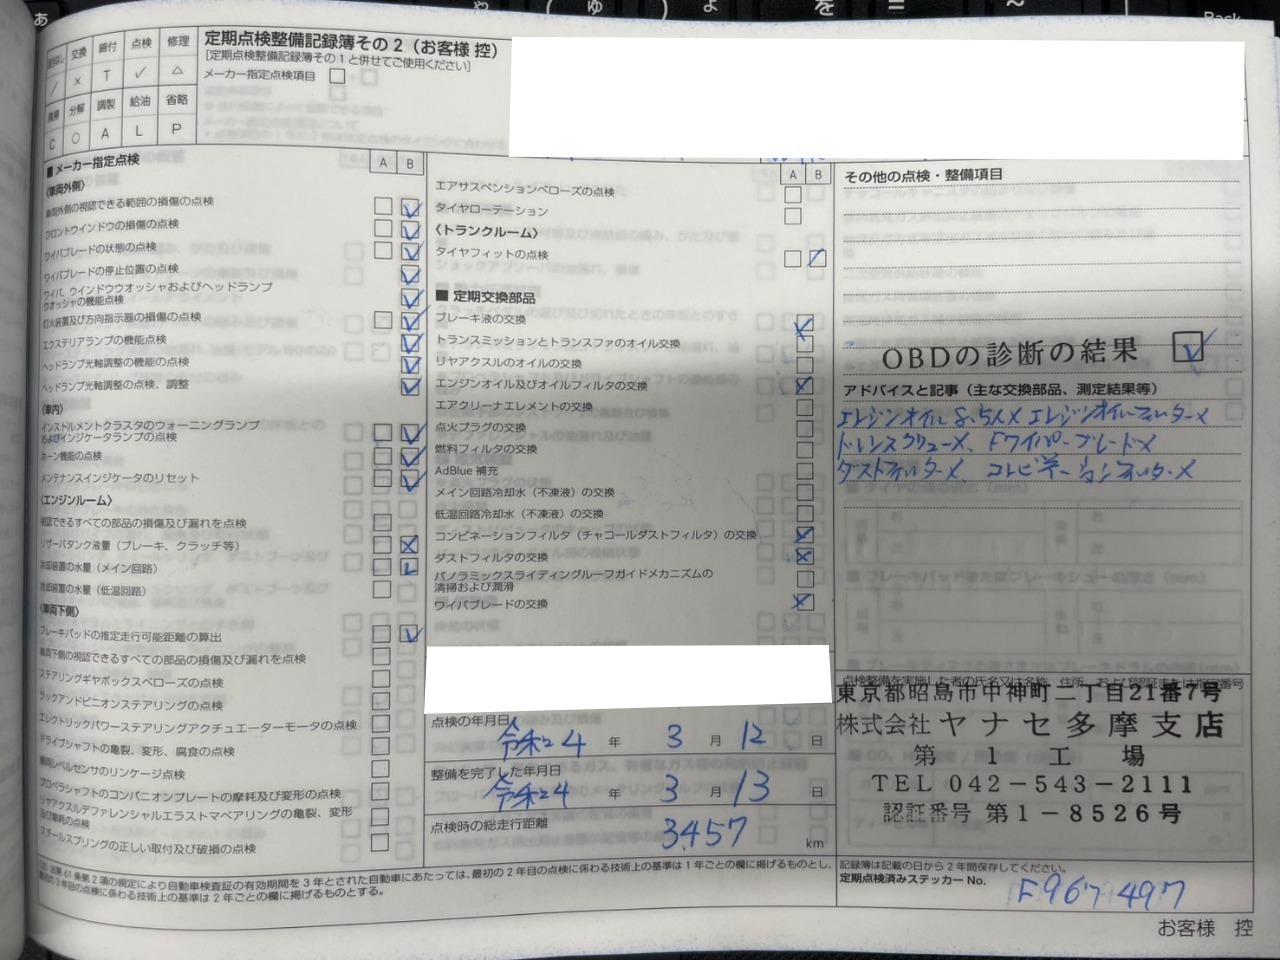 交換 締付 点検 修理
/ × T ✓ △
分解 調製 給油 省略
C O A L P
定期点検整備記録簿その2（お客様 控）
[定期点検整備記録簿その1と併せてご使用ください]
メーカー指定点検項目
■ メーカー指定点検
A B
〈車両外側〉
車両外側の視認できる範囲の損傷の点検
フロントウインドウの損傷の点検
ワイパブレードの状態の点検
ワイパブレードの停止位置の点検
ワイパ、ウインドウウオッシャおよびヘッドランプ
ウオッシャの機能点検
灯火装置及び方向指示器の損傷の点検
エクステリアランプの機能点検
ヘッドランプ光軸調整の機能の点検
ヘッドランプ光軸調整の点検、調整
〈車内〉
インストルメントクラスタのウォーニングランプ
およびインジケータランプの点検
ホーン機能の点検
メンテナンスインジケータのリセット
〈エンジンルーム〉
視認できるすべての部品の損傷及び漏れを点検
リザーバタンク液量（ブレーキ、クラッチ等）
冷却装置の水量（メイン回路）
冷却装置の水量（低温回路）
〈車両下側〉
ブレーキパッドの推定走行可能距離の算出
車両下側の視認できるすべての部品の損傷及び漏れを点検
ステアリングギヤボックスベローズの点検
ラックアンドピニオンステアリングの点検
エレクトリックパワーステアリングアクチュエーターモータの点検
ドライブシャフトの亀裂、変形、腐食の点検
車両レベルセンサのリンケージ点検
プロペラシャフトのコンパニオンプレートの摩耗及び変形の点検
リヤアクスルデファレンシャルエラストマベアリングの亀裂、変形
及び摩耗の点検
スチールスプリングの正しい取付及び破損の点検
A B
エアサスペンションベローズの点検
タイヤローテーション
〈トランクルーム〉
タイヤフィットの点検
■ 定期交換部品
ブレーキ液の交換
トランスミッションとトランスファのオイル交換
リヤアクスルのオイルの交換
エンジンオイル及びオイルフィルタの交換
エアクリーナエレメントの交換
点火プラグの交換
燃料フィルタの交換
AdBlue 補充
メイン回路冷却水（不凍液）の交換
低温回路冷却水（不凍液）の交換
コンビネーションフィルタ（チャコールダストフィルタ）の交換
ダストフィルタの交換
パノラミックスライディングルーフガイドメカニズムの
清掃および潤滑
ワイパブレードの交換
点検の年月日
令和24 年 3 月 12 日
整備を完了した年月日
令和24 年 3 月 13 日
点検時の総走行距離
3457 km
その他の点検・整備項目
OBDの診断の結果 ✓
アドバイスと記事（主な交換部品、測定結果等）
エンジンオイル 8.5L× エンジンオイルフィルター×
ドレンスクリュー×、Fワイパーブレード×
ダストフィルター×、コンビネーションフィルター×
点検整備を実施した者の氏名又は名称、住所、および認証または指定番号
東京都昭島市中神町二丁目21番7号
株式会社ヤナセ多摩支店
第1工場
TEL 042-543-2111
認証番号 第1-8526号
記録簿は記載の日から2年間保存してください。
定期点検済みステッカー No.
F967497
法第61条第2項の規定により自動車検査証の有効期間を3年とされた自動車にあたっては、最初の2年目の点検に係わる技術上の基準は1年ごとの欄に掲げるものとし、
最初の3年目の点検に係わる技術上の基準は2年ごとの欄に掲げるものとする。
お客様 控